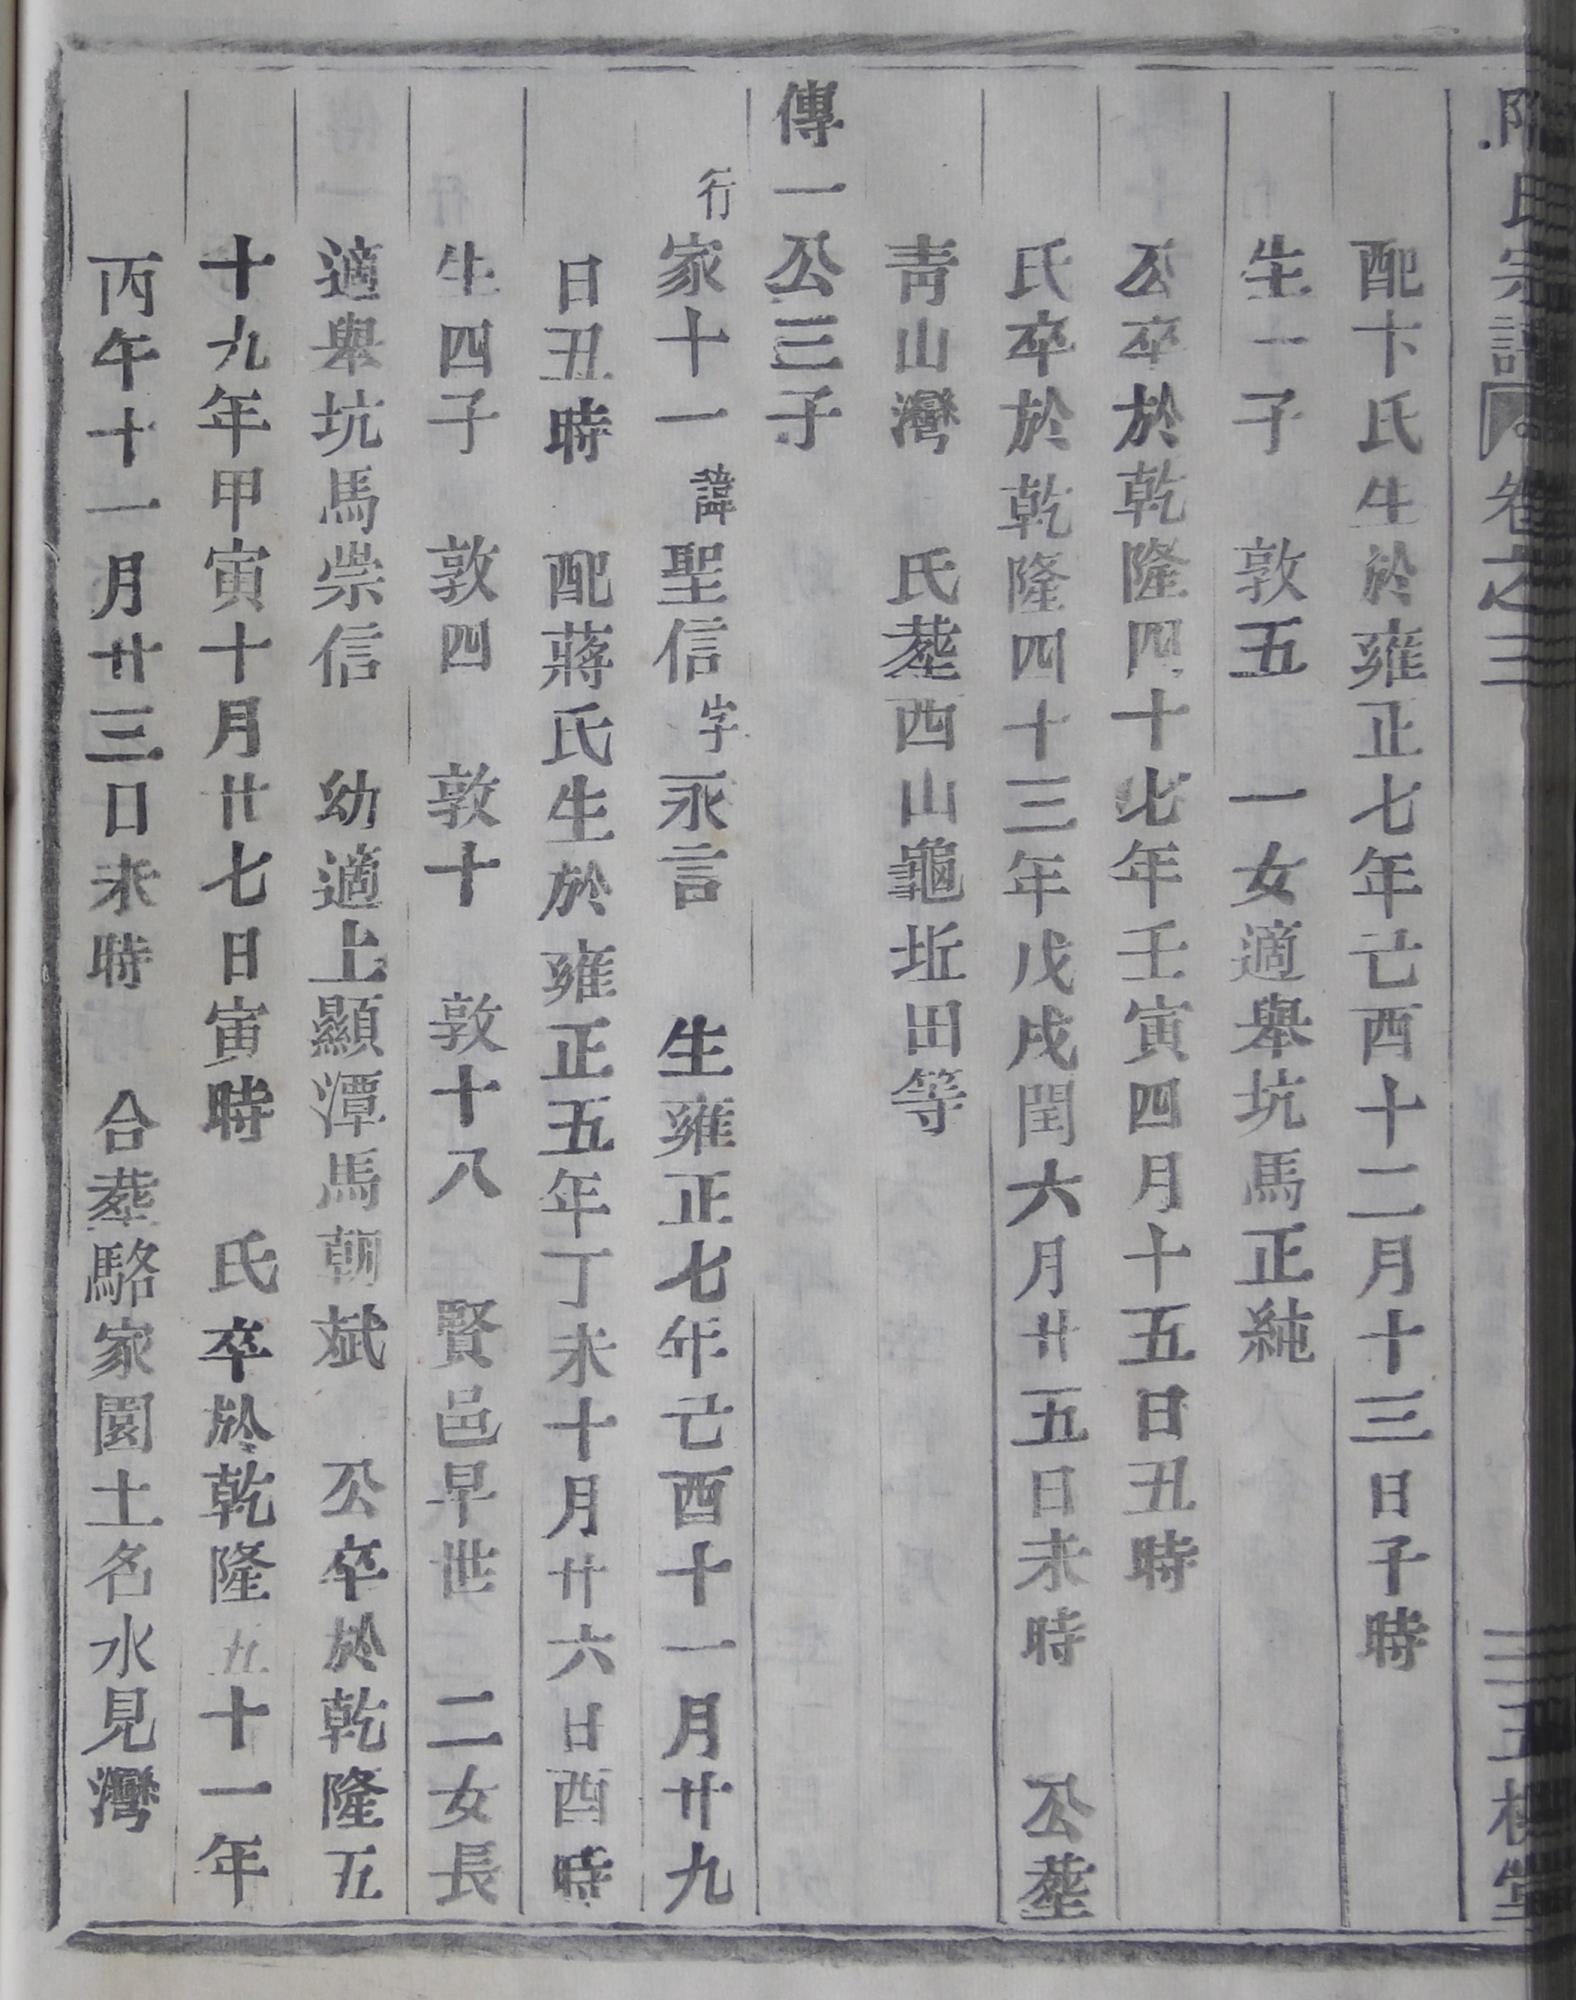 氏宗譜 卷之三 三五 堂
配卞氏生於雍正七年己酉十二月十三日子時
生一子 敦五 一女適舉坑馬正純
公卒於乾隆四十七年壬寅四月十五日丑時
氏卒於乾隆四十三年戊戌閏六月廿五日未時 公塟
靑山灣 氏塟西山龜坵田等
傳一公三子
行家十一 諱聖信 字永言 生雍正七年己酉十一月廿九
日丑時 配蔣氏生於雍正五年丁未十月廿六日酉時
生四子 敦四 敦十 敦十八 賢邑早世 二女長
適舉坑馬崇信 幼適上顯潭馬朝斌 公卒於乾隆五
十九年甲寅十月廿七日寅時 氏卒於乾隆五十一年
丙午十一月廿三日未時 合塟駱家園土名水見灣